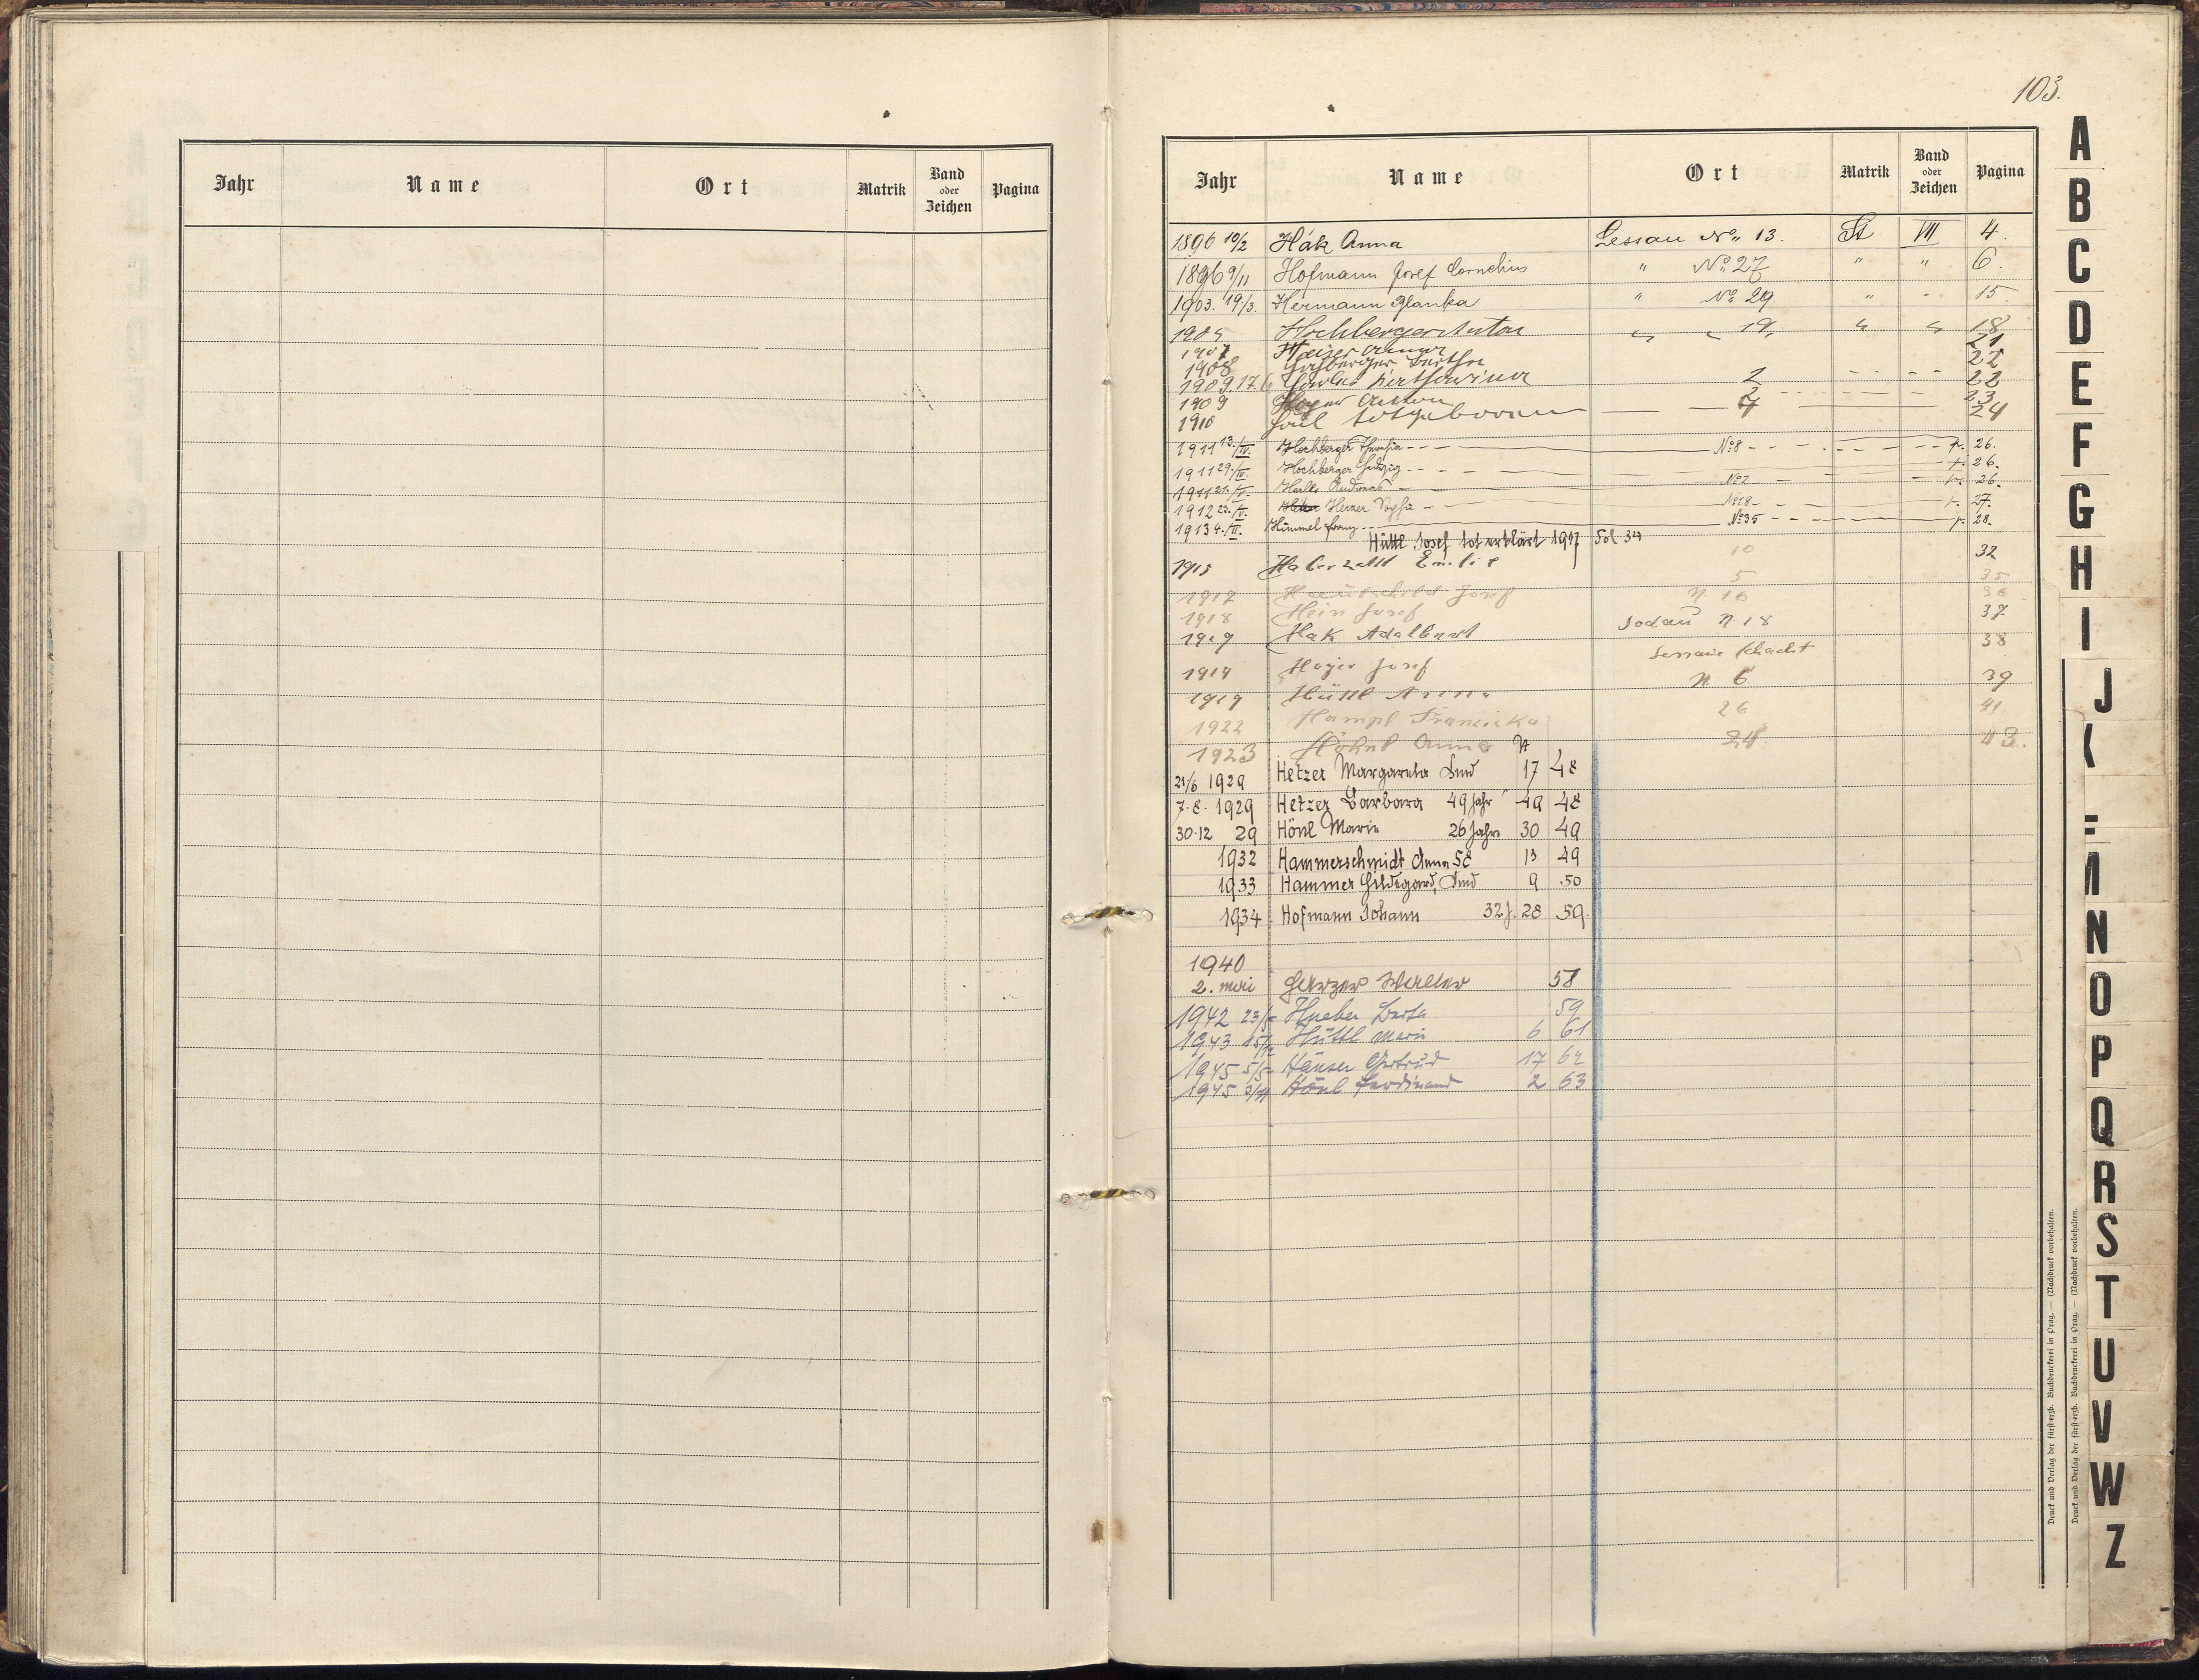 Jahr Name Ort Matrik Band oder Zeichen Pagina
103.
Jahr Name Ort Matrik Band oder Zeichen Pagina
1896 10/2 Hák Anna Lessau No 13. St VII 4.
1896 9/11 Hofmann Josef Cornelius " No 27 " " 6.
1903. 19./3. Hermann Blanka " No 29 " " 15.
1905 Hochberger Anton " " 19, " " 18
1907 21
1908 Berta 22
1909.17 2 22
1909 Anton 23
1910 totgeboren 24
1911 13./IV. Hochberger Theresia No 8 p. 26.
1911 29./IV. Hochberger Hedwig p. 26.
1911 No 2 26.
1912 Herzer Sophie No 18 p. 27.
1913 4./II. Himmel Franz No 35 p. 28.
Hüttl Josef tot erklärt 1917 Fol 34
1915 Haberzettl Emilie 10 32
1917 Josef 5 35
1918 Hein Josef N 16 36
1919 Hak Adalbert Sodau N 18 37
1919 Hoyer Josef Lessau Schacht 38
1919 Hüttl Anna N 6 39
1922 Hampl Franziska 26 41
1923 Höhnl Anna 24 43.
21/6 1929 Hetzer Margareta Kind 17 48
7.8. 1929 Hetzer Barbara 49 Jahr 49 48
30.12 29 Hönl Marie 26 Jahre 30 49
1932 Hammerschmidt Anna 58 13 49
1933 Hammer Hildegard, Kind 9 50
1934 Hofmann Johann 32 J. 28 50.
1940
2. Mai Walter 58
1942 23/5 Hueber Berta 59
1943 15/12 Hüttl Marie 6 61
1945 5/5 Häuser Gertrud 17 62
1945 Hönl Ferdinand 2 63
A
B
C
D
E
F
G
H
I
J
N
O
P
Q
R
S
T
U
V
W
Z
Druck und Verlag der fürsterzb. Buchdruckerei in Prag. — (Nachdruck vorbehalten.
Druck und Verlag der fürsterzb. Buchdruckerei in Prag. — (Nachdruck vorbehalten.